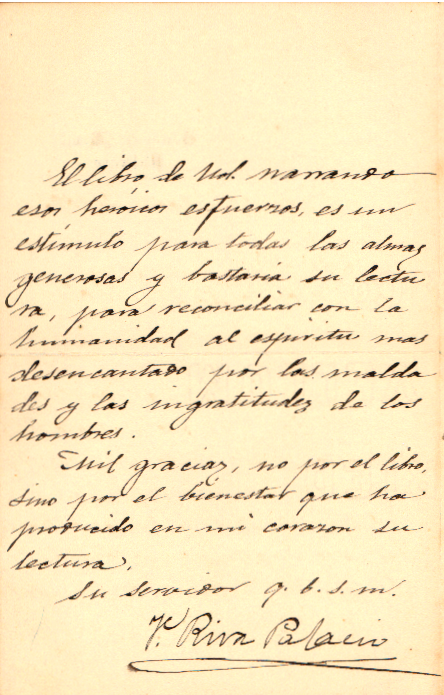 El libro de Ud. narrando
esos heróicos esfuerzos, es un
estímulo para todas las almas
generosas y bastaria su lectu
ra, para reconciliar con la
humanidad al espiritu mas
desencantado por las malda
des y las ingratitudez de los
hombres.
Mil gracias, no por el libro,
sino por el bienestar que ha
producido en mi corazon su
lectura.
Su servidor q. b. s. m.
V. Riva Palacio